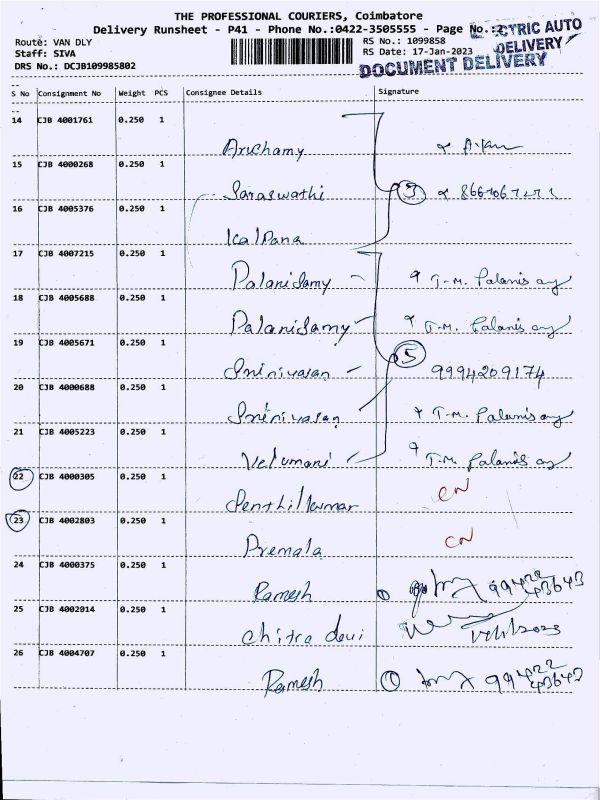 THE PROFESSIONAL COURIERS, Coimbatore
Delivery Runsheet - P41 - Phone No.:0422-3505555 - Page No.:2
ELECTRIC AUTO DELIVERY
DOCUMENT DELIVERY
Route: VAN DLY RS No.: 1099858
Staff: SIVA RS Date: 17-Jan-2023
DRS No.: DCJB109985802
S No Consignment No Weight PCS Consignee Details Signature
14 CJB 4001761 0.250 1 Arichamy
15 CJB 4000268 0.250 1 Saraswathi 3
16 CJB 4005376 0.250 1 Kalpana
17 CJB 4007215 0.250 1 Palanisamy T.M. Palanisamy
18 CJB 4005688 0.250 1 Palanisamy T.M. Palanisamy
19 CJB 4005671 0.250 1 Srinivasan 5 9994209174
20 CJB 4000688 0.250 1 Srinivasan T.M. Palanisamy
21 CJB 4005223 0.250 1 Velumani T.M. Palanisamy
22 CJB 4000305 0.250 1 Senthilkumar CN
23 CJB 4002803 0.250 1 Premala CN
24 CJB 4000375 0.250 1 Ramesh 1 99422 43643
25 CJB 4002014 0.250 1 Chitra devi
26 CJB 4004707 0.250 1 Ramesh 1 99422 43643